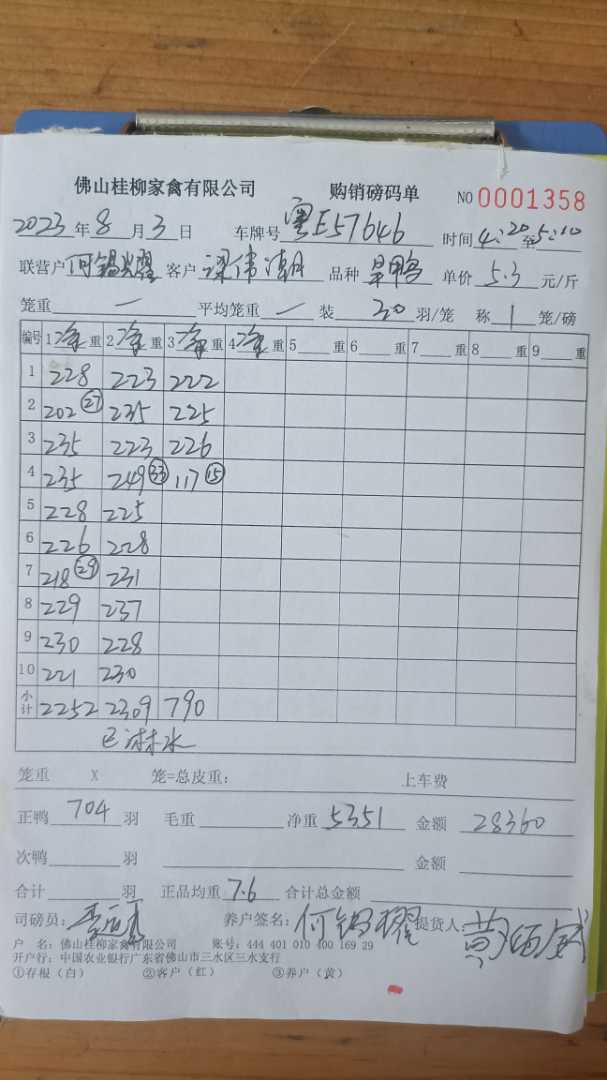 佛山桂柳家禽有限公司 购销磅码单 NO 0001358
2023年8月3日 车牌号 粤E57646 时间 4:20至5:10
联营户 何锡耀 客户 梁伟潮 品种 旱鸭 单价 5.3 元/斤
笼重 一 平均笼重 一 装 30 羽/笼 称 1 笼/磅
编号 1 净重 2 净重 3 净重 4 净重 5 重 6 重 7 重 8 重 9 重
1 228 223 222
2 202 (27) 235 225
3 235 223 226
4 235 249 (33) 117 (15)
5 228 225
6 226 228
7 218 (29) 231
8 229 237
9 230 228
10 221 230
小计 2252 2309 790
已淋水
笼重 X 笼=总皮重: 上车费
正鸭 704 羽 毛重 净重 5351 金额 28360
次鸭 羽 金额
合计 羽 正品均重 7.6 合计总金额
司磅员: 养户签名: 何锡耀 提货人
户 名: 佛山桂柳家禽有限公司 账号: 444 401 010 400 169 29
开户行: 中国农业银行广东省佛山市三水区三水支行
①存根(白) ②客户(红) ③养户(黄)